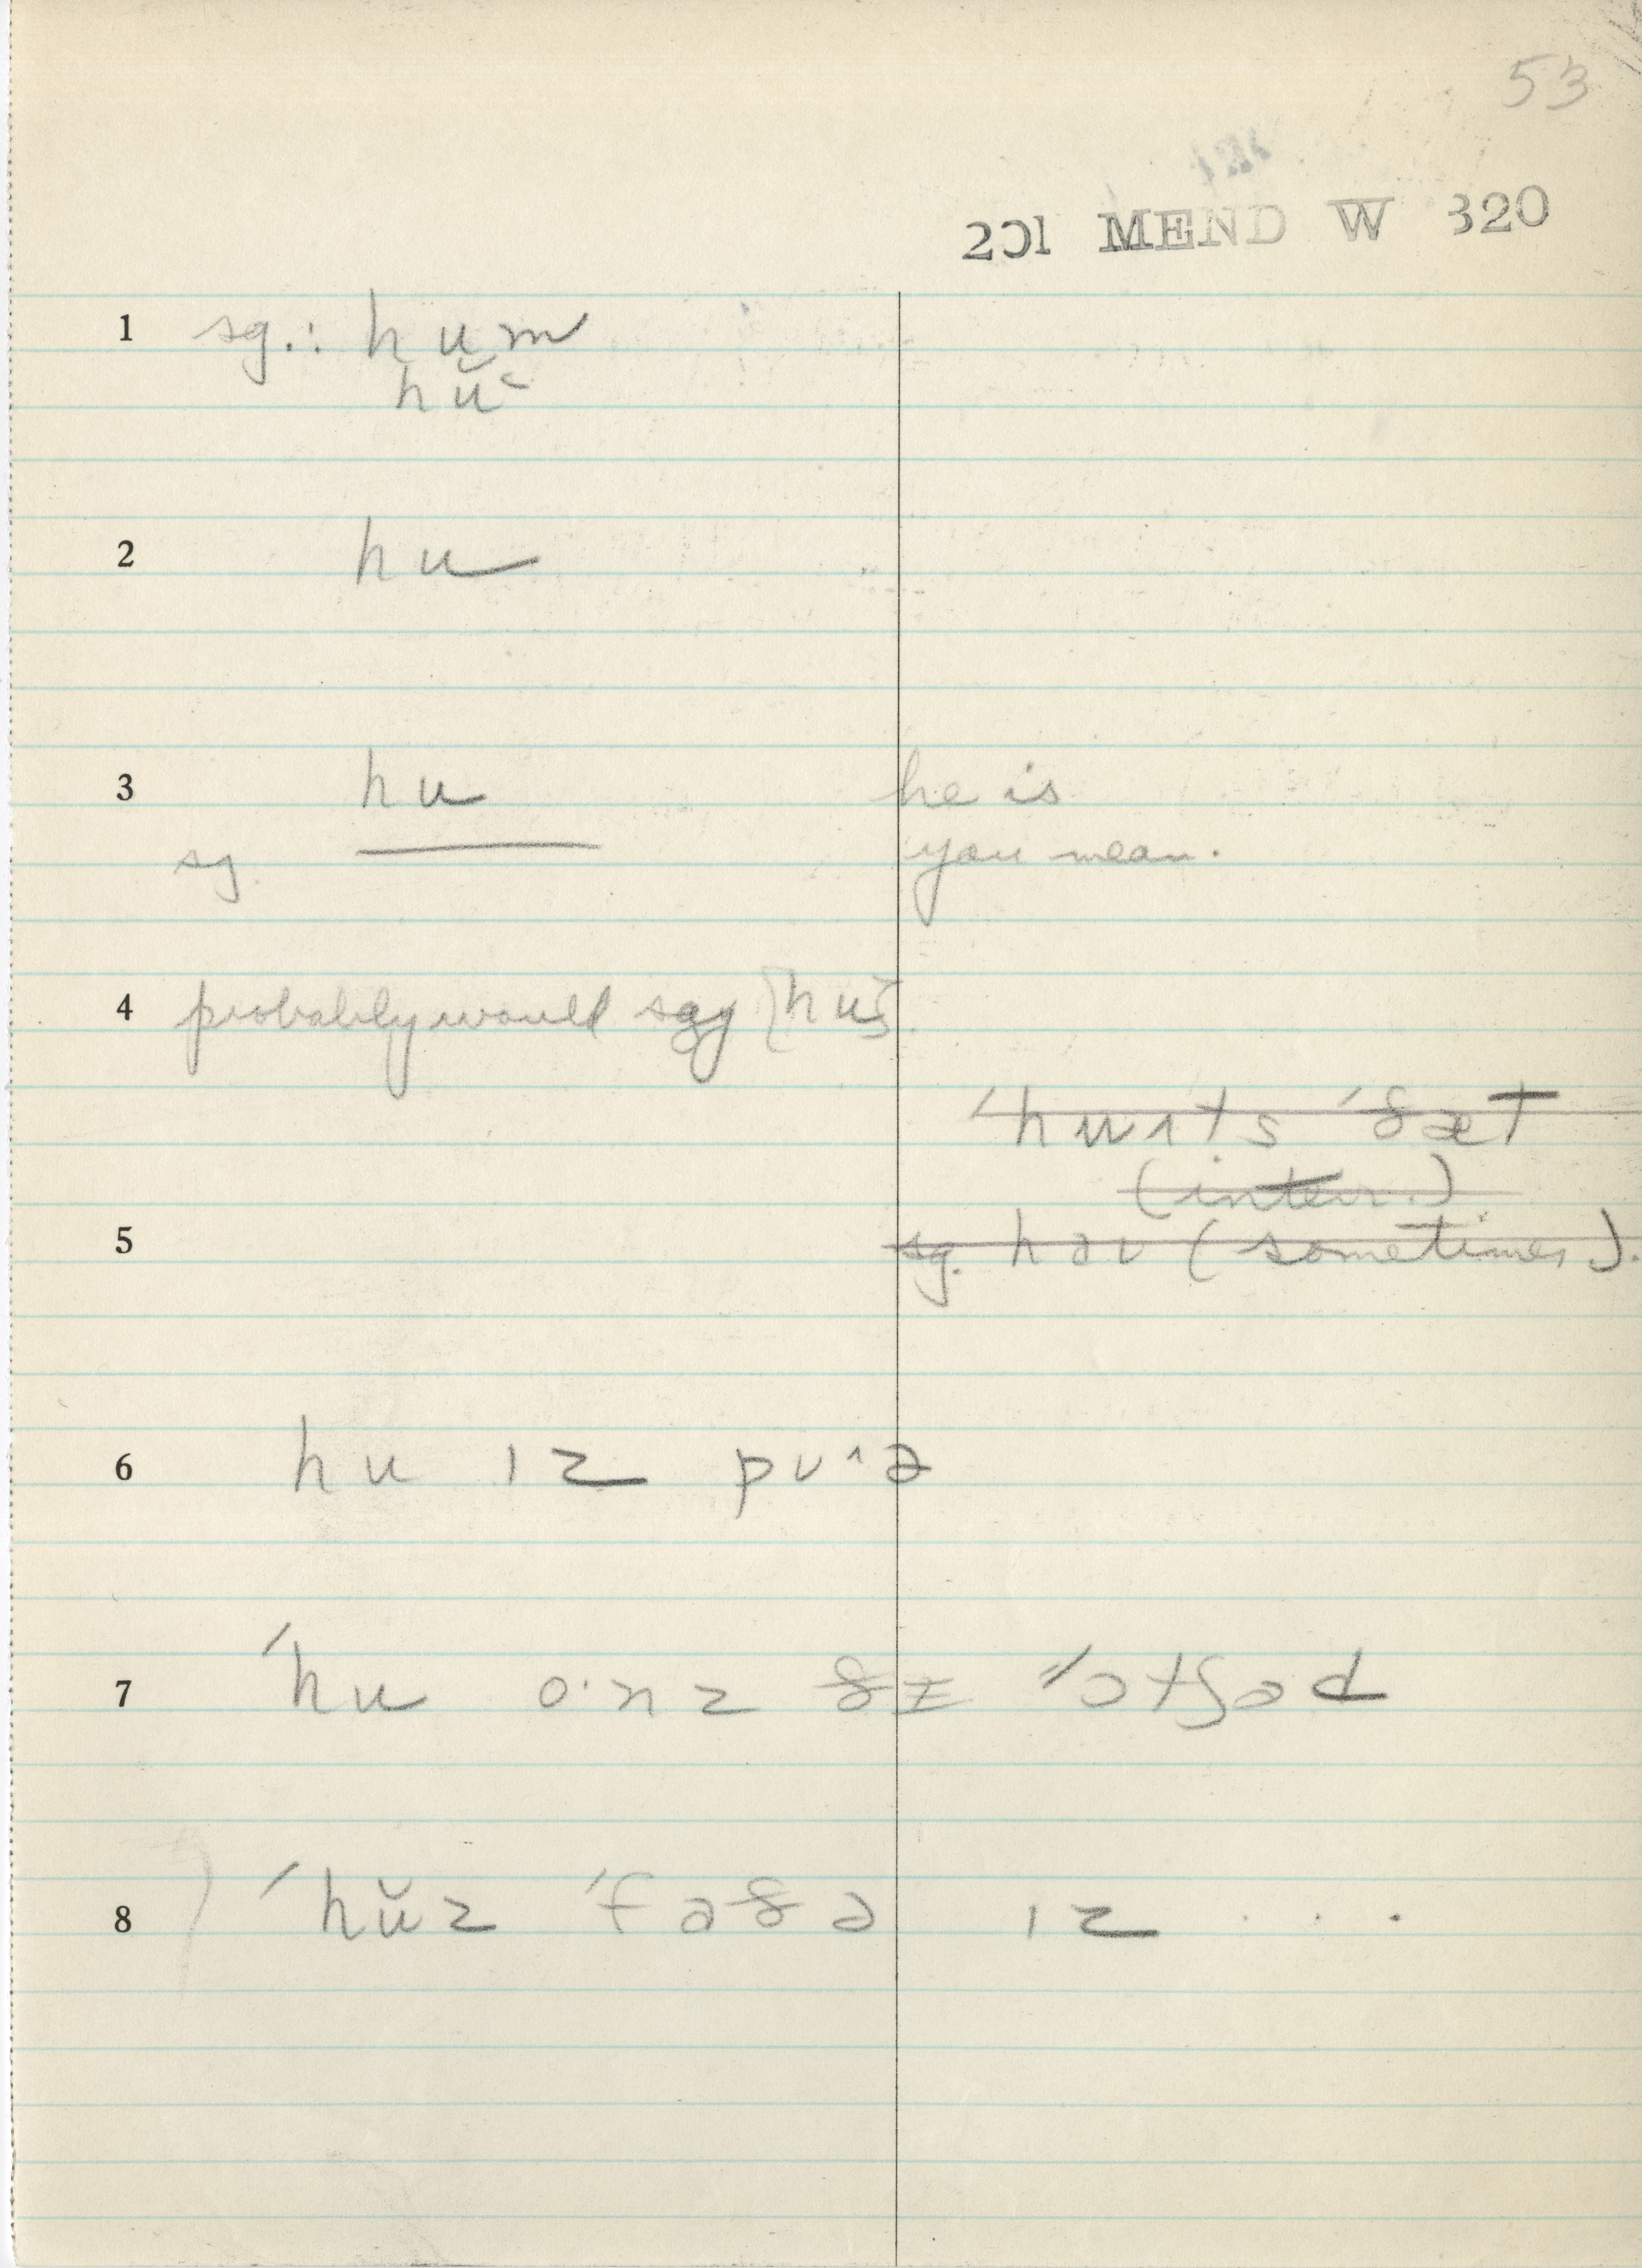 53
201 MEND W 320
1 sg.: hum
hŭ˂
2 hu
3 hu he is
sg. you mean.
4 probably would say
ˈhuɪts ˈðæt
(interr.)
5 sg. həʊ (sometimes).
6 hu ɪz pʊ˄ə
7 ˈhu o·nz ðɪ ˈˈɔtʃəd
8 ˈhŭz ˈfəðə ɪz . . .